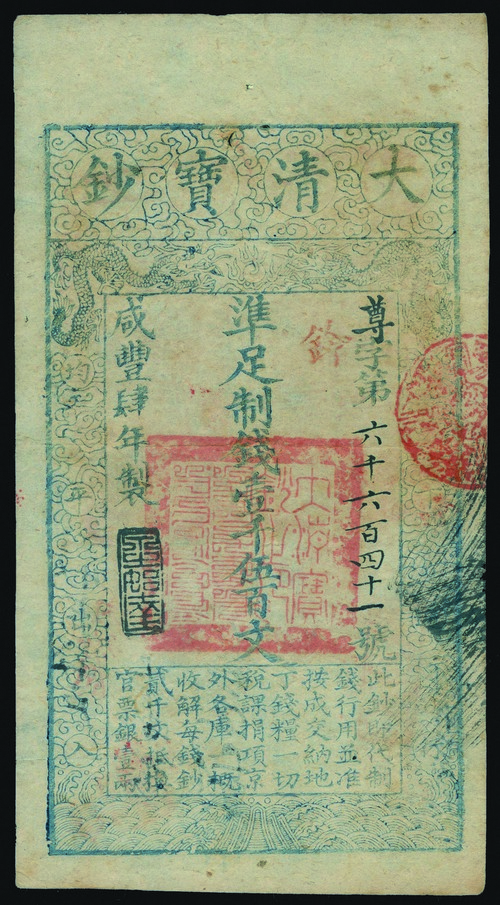 大清寶鈔
尊字第六千六百四十一號
鈐
準足制錢壹千伍百文
咸豐肆年製
均平出入
此鈔即代制
錢行用並准
按成交納地
丁錢糧一切
稅課捐項京
外各庫一概
收解每錢鈔
貳千文抵換
官票銀壹兩